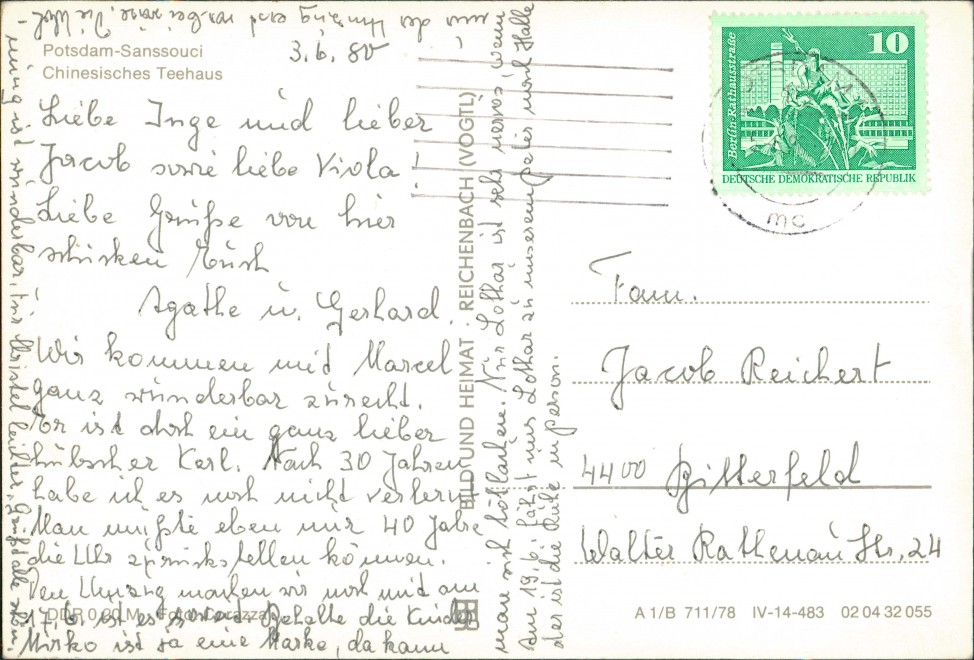 Potsdam-Sanssouci
Chinesisches Teehaus
3.6.80
Liebe Inge und lieber
Jacob sowie liebe Viola!
Liebe Grüße von hier
schicken Euch
Agathe u. Gerhard.
Wir kommen mit Marcel
ganz wunderbar zurecht.
Er ist doch ein ganz lieber
hübscher Kerl. Nach 30 Jahren
habe ich es noch nicht verlernt
Man müßte eben nur 40 Jahre
die Uhr zurückstellen können.
Den Umzug machen wir noch mit am
17. ist es soweit. Behalte die Kinder
Mirko ist ja eine Marke, da kann
man sich totlachen. Nur Lothar ist sehr nervös wenn
nur der Umzug erst vorbei wäre. Die Woh-
nung ist wunderbar, für Christel leichter.
am 19.6. fährt uns Lothar zu unserem Peter nach Halle
der ist die Ruhe in Person.
BILD UND HEIMAT · REICHENBACH (VOGTL)
DDR 0,20 M Foto: Corazza
10
Berlin Rathausstraße
DEUTSCHE DEMOKRATISCHE REPUBLIK
mc
Fam.
Jacob Reichert
4400 Bitterfeld
Walter Rathenau Str. 24
A 1/B 711/78 IV-14-483 02 04 32 055